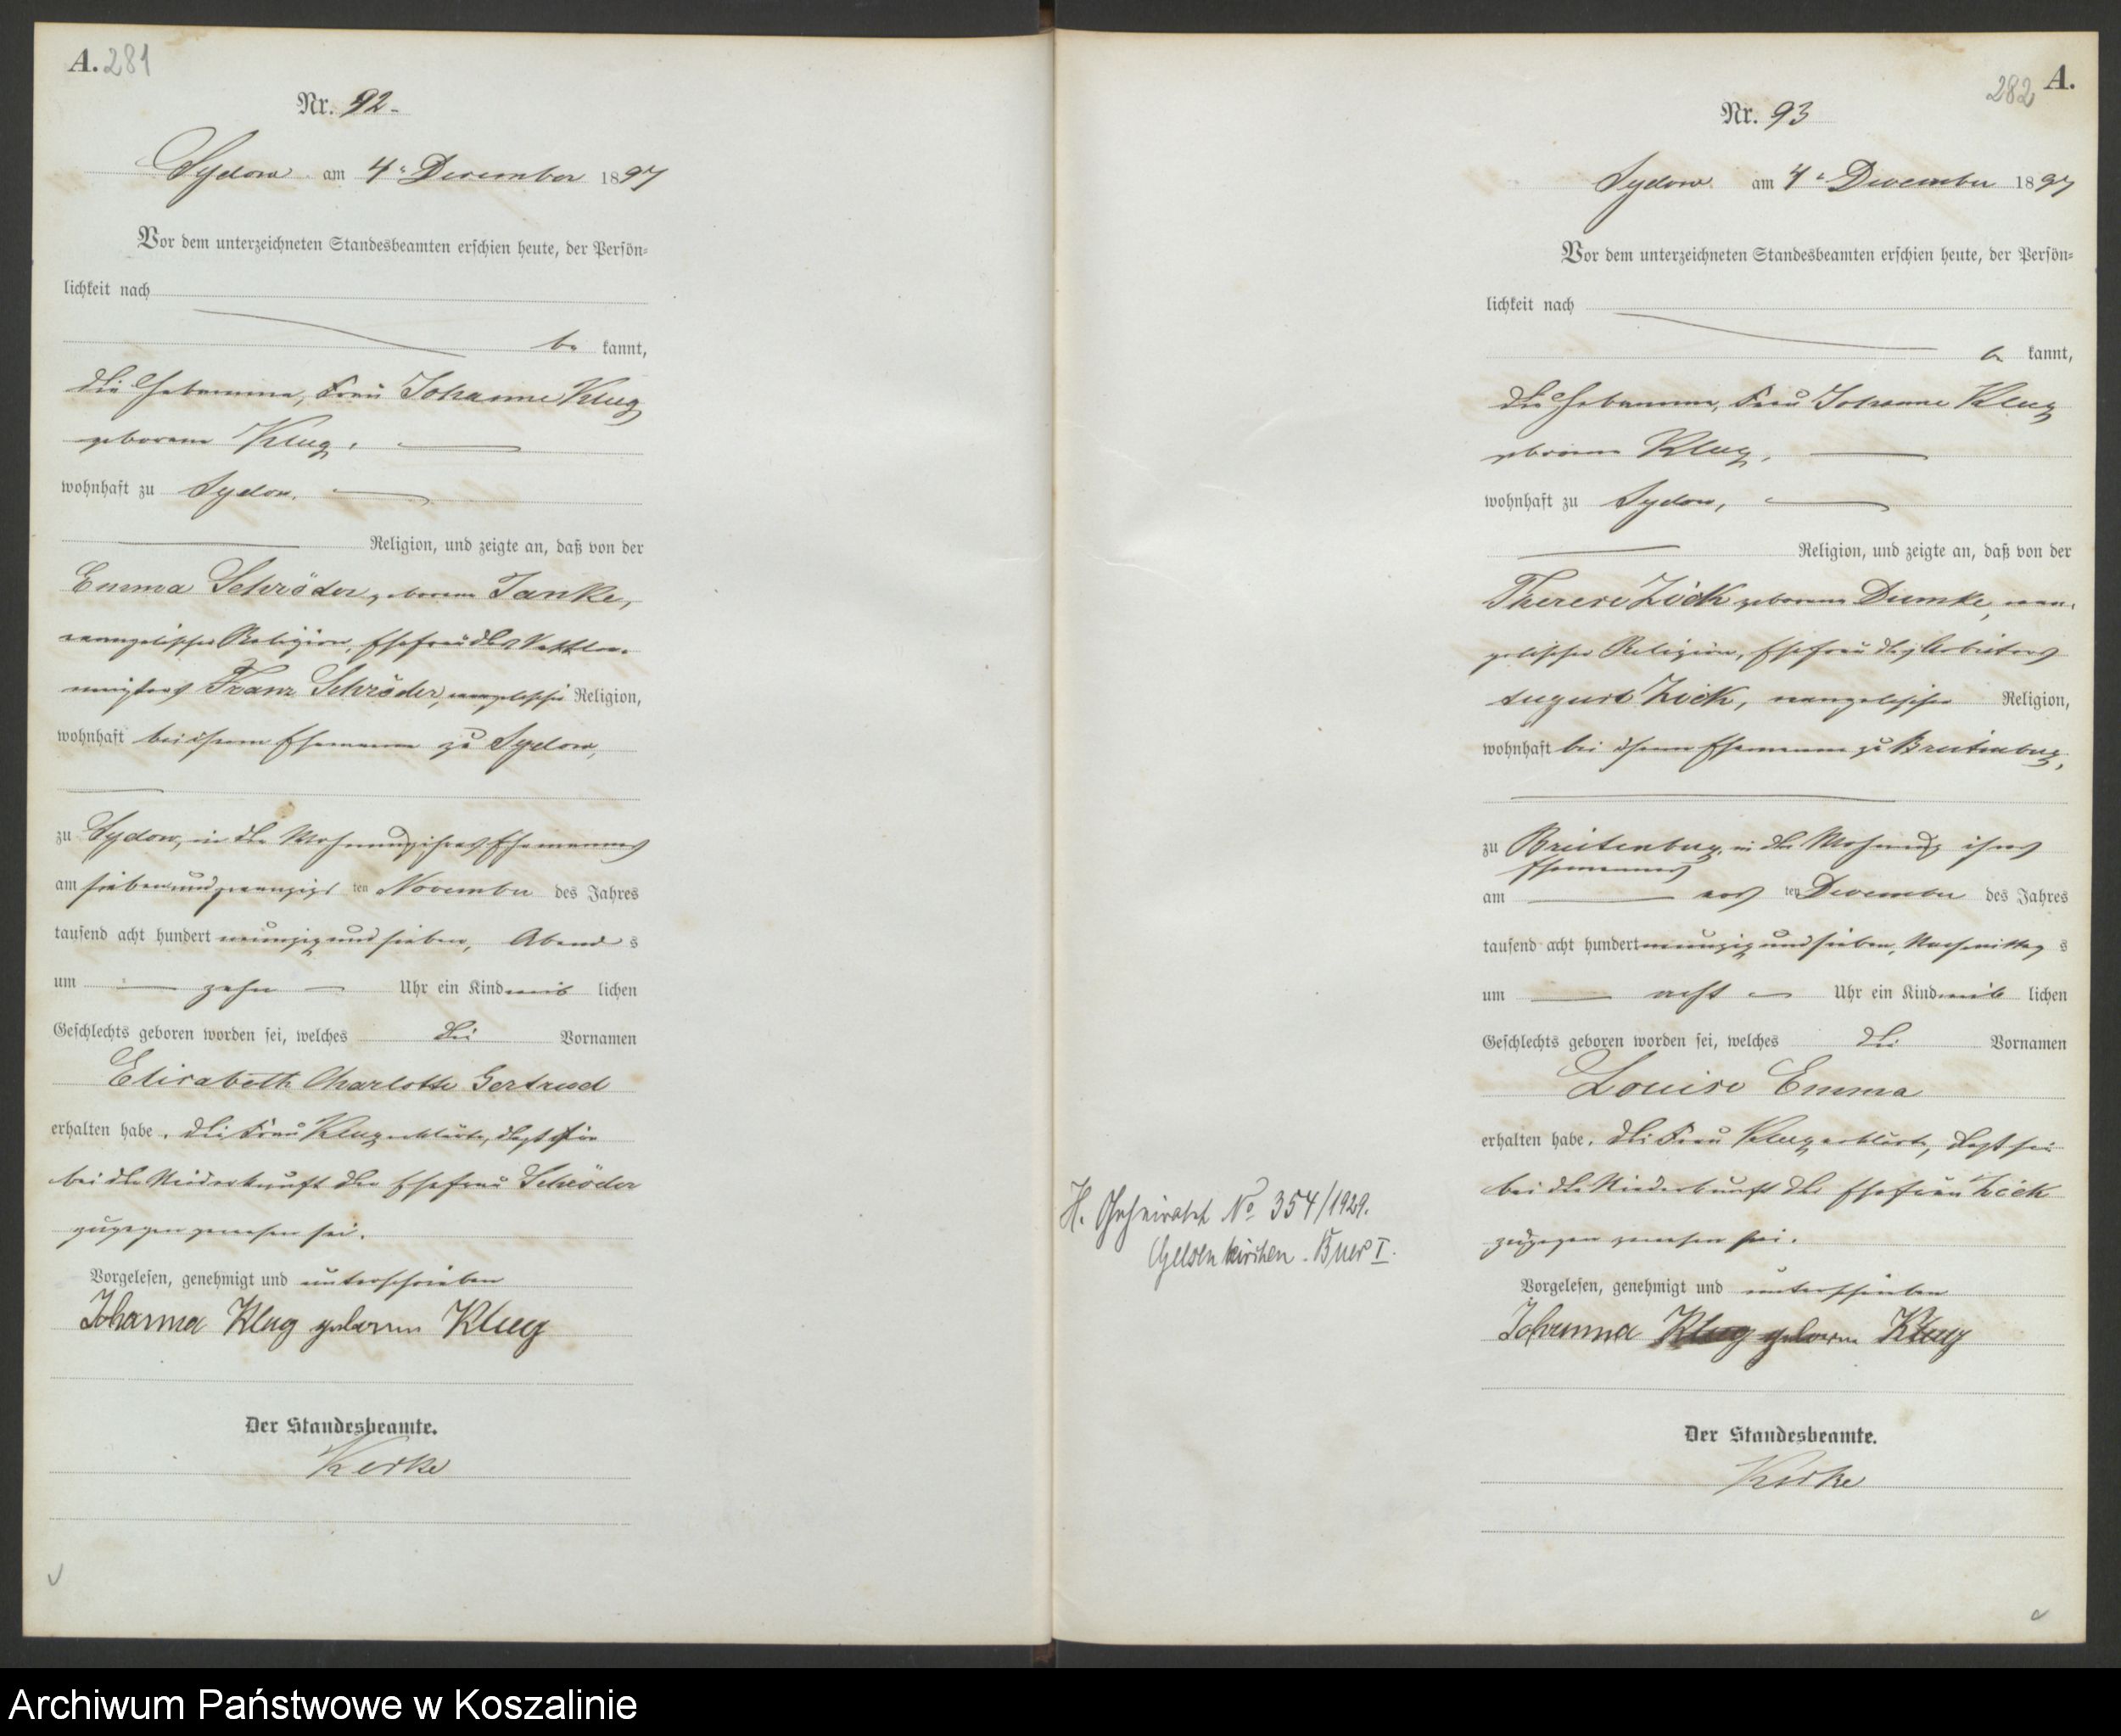 A. 281
Nr. 92.
Sydow am 4. December 1897
Vor dem unterzeichneten Standesbeamten erschien heute, der Persön-
lichkeit nach
be kannt,
die Hebamme, Frau Johanne Klug
geborene Klug,
wohnhaft zu Sydow,
Religion, und zeigte an, daß von der
Emma Schröder, geborene Janke,
evangelischer Religion, Ehefrau des
Franz Schröder, evangelischer Religion,
wohnhaft bei ihrem Ehemanne zu Sydow,
zu Sydow, in der Wohnung ihres Ehemannes
am siebenundzwanzigs ten November des Jahres
tausend acht hundert neunzig und sieben, Abend s
um zehn Uhr ein Kind weib lichen
Geschlechts geboren worden sei, welches die Vornamen
Elisabeth Charlotte Gertrud
erhalten habe. Die Frau Klug erklärte, daß sie
bei der Niederkunft der Ehefrau Schröder
zugegen gewesen sei.
Vorgelesen, genehmigt und unterschrieben
Johanna Klug geborene Klug
Der Standesbeamte.
Kerke
282 A.
Nr. 93
Sydow am 4. December 1897
Vor dem unterzeichneten Standesbeamten erschien heute, der Persön-
lichkeit nach
be kannt,
die Hebamme, Frau Johanne Klug
geborene Klug,
wohnhaft zu Sydow,
Religion, und zeigte an, daß von der
Therese Zick geborene Dumke, evan-
gelischer Religion, Ehefrau des Arbeiters
August Zick, evangelischer Religion,
wohnhaft bei ihrem Ehemanne zu Breitenberg,
zu Breitenberg, in der Wohnung ihres
Ehemannes
am ers ten December des Jahres
tausend acht hundert neunzig und sieben, Nachmittag s
um acht Uhr ein Kind weib lichen
Geschlechts geboren worden sei, welches die Vornamen
Louise Emma
erhalten habe. Die Frau Klug erklärte, daß sie
bei der Niederkunft der Ehefrau Zick
zugegen gewesen sei.
H. Geheiratet No 354/1929.
Gelsenkirchen-Buer I.
Vorgelesen, genehmigt und unterschrieben
Johanna Klug geborene Klug
Der Standesbeamte.
Kerke
Archiwum Państwowe w Koszalinie